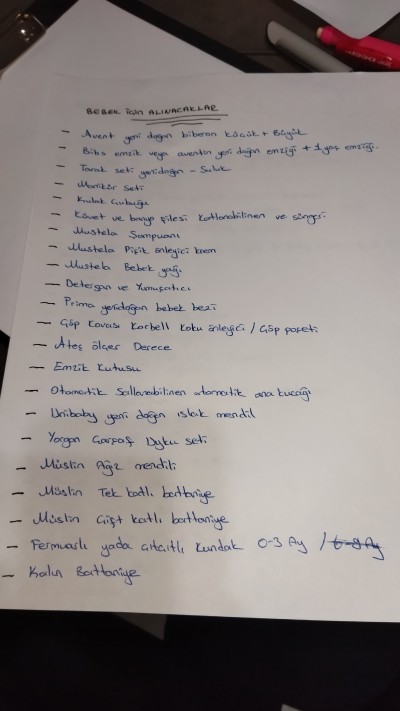 BEBEK için ALINACAKLAR
- Avent yeni doğan biberon küçük + Büyük
- Bibs emzik veya aventin yeni doğan emziği + 1 yaş emziği.
- Tarak seti yenidoğan - Suluk
- Manikür Seti
- Kulak Çubuğu
- Küvet ve banyo filesi katlanabilinen ve süngeri
- Mustela Şampuanı
- Mustela Pişik önleyici krem
- Mustela Bebek yağı
- Deterjan ve Yumuşatıcı
- Prima yenidoğan bebek bezi
- Çöp Kovası Korbell Koku önleyici / Çöp poşeti
- Ateş ölçer Derece
- Emzik Kutusu
- Otomatik Sallanabilinen otomatik ana kucağı
- Unibaby yeni doğan ıslak mendil
- Yorgan Çarşaf Uyku seti
- Müslin Ağız mendili
- Müslin Tek katlı battaniye
- Müslin Çift katlı battaniye
- Fermuarlı yada çıtçıtlı kundak 0-3 Ay / 6-9 Ay
- Kalın Battaniye